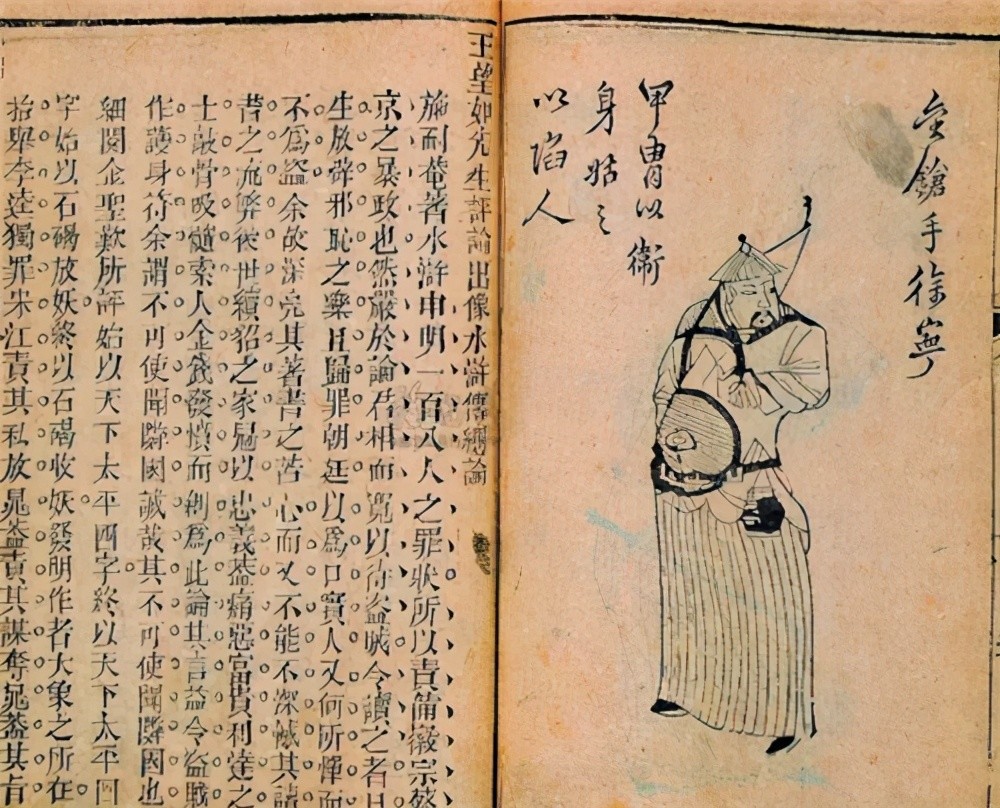 金鎗手徐寧
甲冑以衛
身姑之
以陷人
王望如先生評論出像水滸傳總論
施耐菴著水滸申明一百八人之罪狀所以責備徽宗蔡
京之暴政也然嚴於論君相而寬以待盜賊令讀之者日
生放辟邪侈之樂且歸罪朝廷以爲口實人又何所憚而
不爲盜余故深亮其著書之苦心而又不能不深憾其讀
書之流弊後世續貂之家冠以忠義蓋痛惡富貴利達之
士敲骨吸髓索人金錢發憤而創爲此論其言益令盜賊
作護身符余謂不可使聞隣國誠哉其不可使聞隣國也
細閱金聖歎所評始以天下太平四字終以天下太平四
字始以石碣放妖終以石碣收妖發明作者大象之所在
抬舉李逵獨罪宋江責其私放晁蓋責其謀奪晁蓋其旨